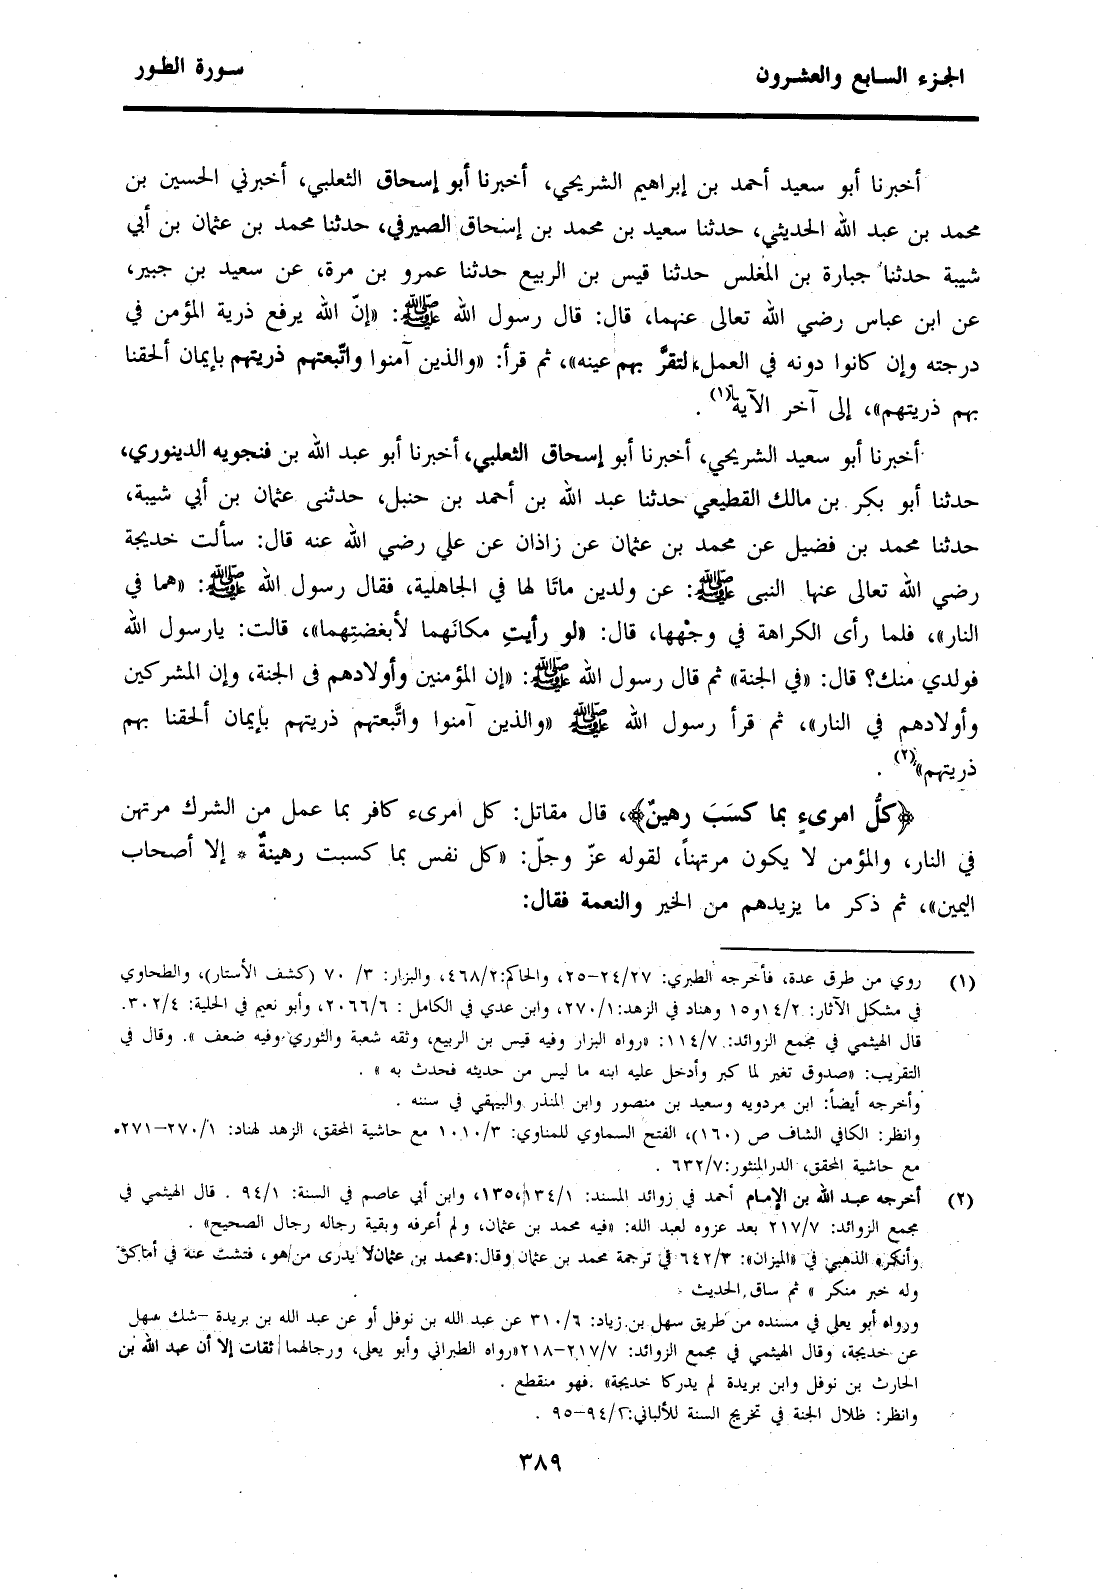 الجزء السابع والعشرون
سورة الطور
أخبرنا أبو سعيد أحمد بن إبراهيم الشريحي، أخبرنا أبو إسحاق الثعلبي، أخبرني الحسين بن
محمد بن عبد الله الحديثي، حدثنا سعيد بن محمد بن إسحاق الصيرفي، حدثنا محمد بن عثمان بن أبي
شيبة حدثنا جبارة بن المغلس حدثنا قيس بن الربيع حدثنا عمرو بن مرة، عن سعيد بن جبير،
عن ابن عباس رضي الله تعالى عنهما، قال: قال رسول الله ﷺ: «إنّ الله يرفع ذرية المؤمن في
درجته وإن كانوا دونه في العمل، لتقرَّ بهم عينه»، ثم قرأ: «والذين آمنوا واتّبعتهم ذريتهم بإيمان ألحقنا
بهم ذريتهم»، إلى آخر الآية(١) .
أخبرنا أبو سعيد الشريحي، أخبرنا أبو إسحاق الثعلبي، أخبرنا أبو عبد الله بن فنجويه الدينوري،
حدثنا أبو بكر بن مالك القطيعي حدثنا عبد الله بن أحمد بن حنبل، حدثنى عثمان بن أبي شيبة،
حدثنا محمد بن فضيل عن محمد بن عثمان عن زاذان عن علي رضي الله عنه قال: سألت خديجة
رضي الله تعالى عنها النبى ﷺ: عن ولدين ماتَا لها في الجاهلية، فقال رسول الله ﷺ: «هما في
النار»، فلما رأى الكراهة في وجْهها، قال: «لو رأيتِ مكانَهما لأبغضتِهما»، قالت: يارسول الله
فولدي منك؟ قال: «في الجنة» ثم قال رسول الله ﷺ: «إن المؤمنين وأولادهم فى الجنة، وإن المشركين
وأولادهم في النار»، ثم قرأ رسول الله ﷺ «والذين آمنوا واتَّبعتهم ذريتهم بإيمان ألحقنا بهم
ذريتهم»(٢) .
﴿كلُّ امرىءٍ بما كسَبَ رهينٌ﴾، قال مقاتل: كل امرىء كافر بما عمل من الشرك مرتهن
في النار، والمؤمن لا يكون مرتهناً، لقوله عزّ وجلّ: «كل نفس بما كسبت رهينةٌ * إلا أصحاب
اليمين»، ثم ذكر ما يزيدهم من الخير والنعمة فقال:
(١) روي من طرق عدة، فأخرجه الطبري: ٢٧/٢٤–٢٥، والحاكم:٤٦٨/٢، والبزار: ٣/ ٧٠ (كشف الأستار)، والطحاوي
في مشكل الآثار: ١٤/٢و١٥ وهناد في الزهد:٢٧٠/١، وابن عدي في الكامل : ٢٠٦٦/٦، وأبو نعيم في الحلية: ٣٠٢/٤.
قال الهيثمي في مجمع الزوائد: ١١٤/٧: «رواه البزار وفيه قيس بن الربيع، وثقه شعبة والثوري وفيه ضعف ». وقال في
التقريب: «صدوق تغير لما كبر وأدخل عليه ابنه ما ليس من حديثه فحدث به » .
وأخرجه أيضاً: ابن مردويه وسعيد بن منصور وابن المنذر والبيهقي في سننه .
وانظر: الكافي الشاف ص (١٦٠)، الفتح السماوي للمناوي: ١٠١٠/٣ مع حاشية المحقق، الزهد لهناد: ٢٧٠/١–٢٧١
مع حاشية المحقق، الدرالمنثور:٦٣٢/٧ .
(٢) أخرجه عبد الله بن الإمام أحمد في زوائد المسند: ١٣٤/١،١٣٥، وابن أبي عاصم في السنة: ٩٤/١ . قال الهيثمي في
مجمع الزوائد: ٢١٧/٧ بعد عزوه لعبد الله: «فيه محمد بن عثمان، ولم أعرفه وبقية رجاله رجال الصحيح» .
وأنكره الذهبي في «الميزان»: ٦٤٢/٣ في ترجمة محمد بن عثمان وقال:«محمد بن عثمان لا يدرى من هو، فتشت عنه في أماكن
وله خبر منكر » ثم ساق الحديث .
ورواه أبو يعلى في مسنده من طريق سهل بن زياد: ٣١٠/٦ عن عبد الله بن نوفل أو عن عبد الله بن بريدة –شك سهل
عن خديجة، وقال الهيثمي في مجمع الزوائد: ٢١٧/٧–٢١٨«رواه الطبراني وأبو يعلى، ورجالهما ثقات إلا أن عبد الله بن
الحارث بن نوفل وابن بريدة لم يدركا خديجة» .فهو منقطع .
وانظر: ظلال الجنة في تخريج السنة للألباني:٩٤/٢–٩٥ .
٣٨٩